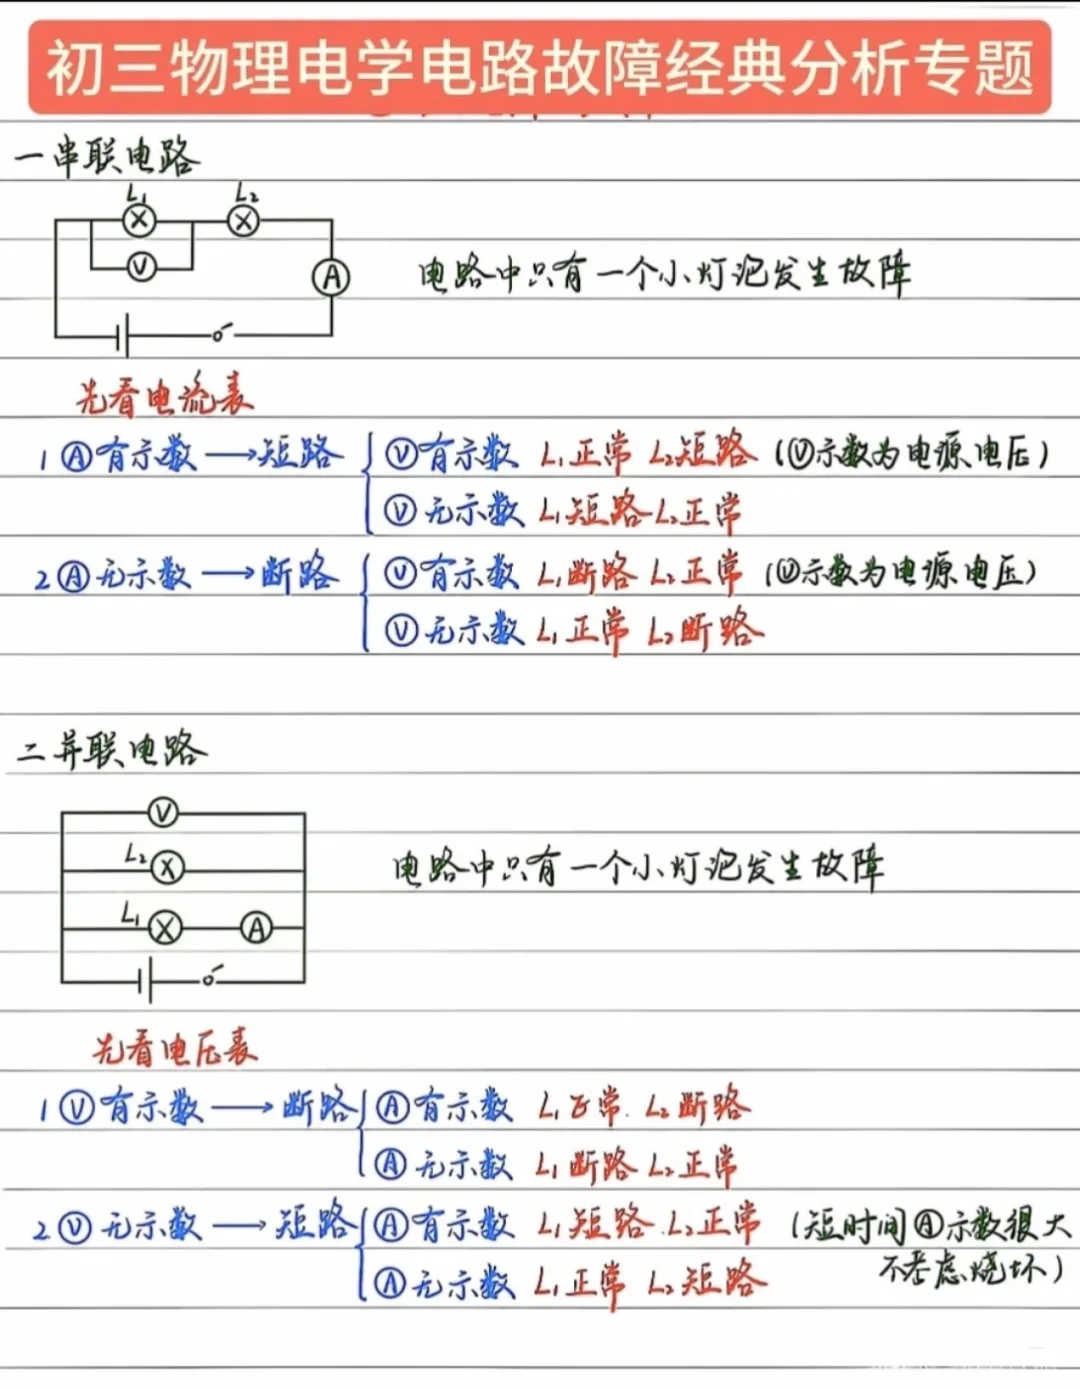 初三物理电学电路故障经典分析专题
一串联电路
L₁ L₂
V
A
电路中只有一个小灯泡发生故障
先看电流表
1 Ⓐ有示数→短路 { Ⓥ有示数 L₁正常 L₂短路 (Ⓥ示数为电源电压)
Ⓥ无示数 L₁短路 L₂正常
2 Ⓐ无示数→断路 { Ⓥ有示数 L₁断路 L₂正常 (Ⓥ示数为电源电压)
Ⓥ无示数 L₁正常 L₂断路
二并联电路
V
L₂
电路中只有一个小灯泡发生故障
L₁ A
先看电压表
1 Ⓥ有示数→断路 { Ⓐ有示数 L₁正常. L₂断路
Ⓐ无示数 L₁断路 L₂正常
2 Ⓥ无示数→短路 { Ⓐ有示数 L₁短路 L₂正常 (短时间Ⓐ示数很大
不考虑烧坏)
Ⓐ无示数 L₁正常 L₂短路